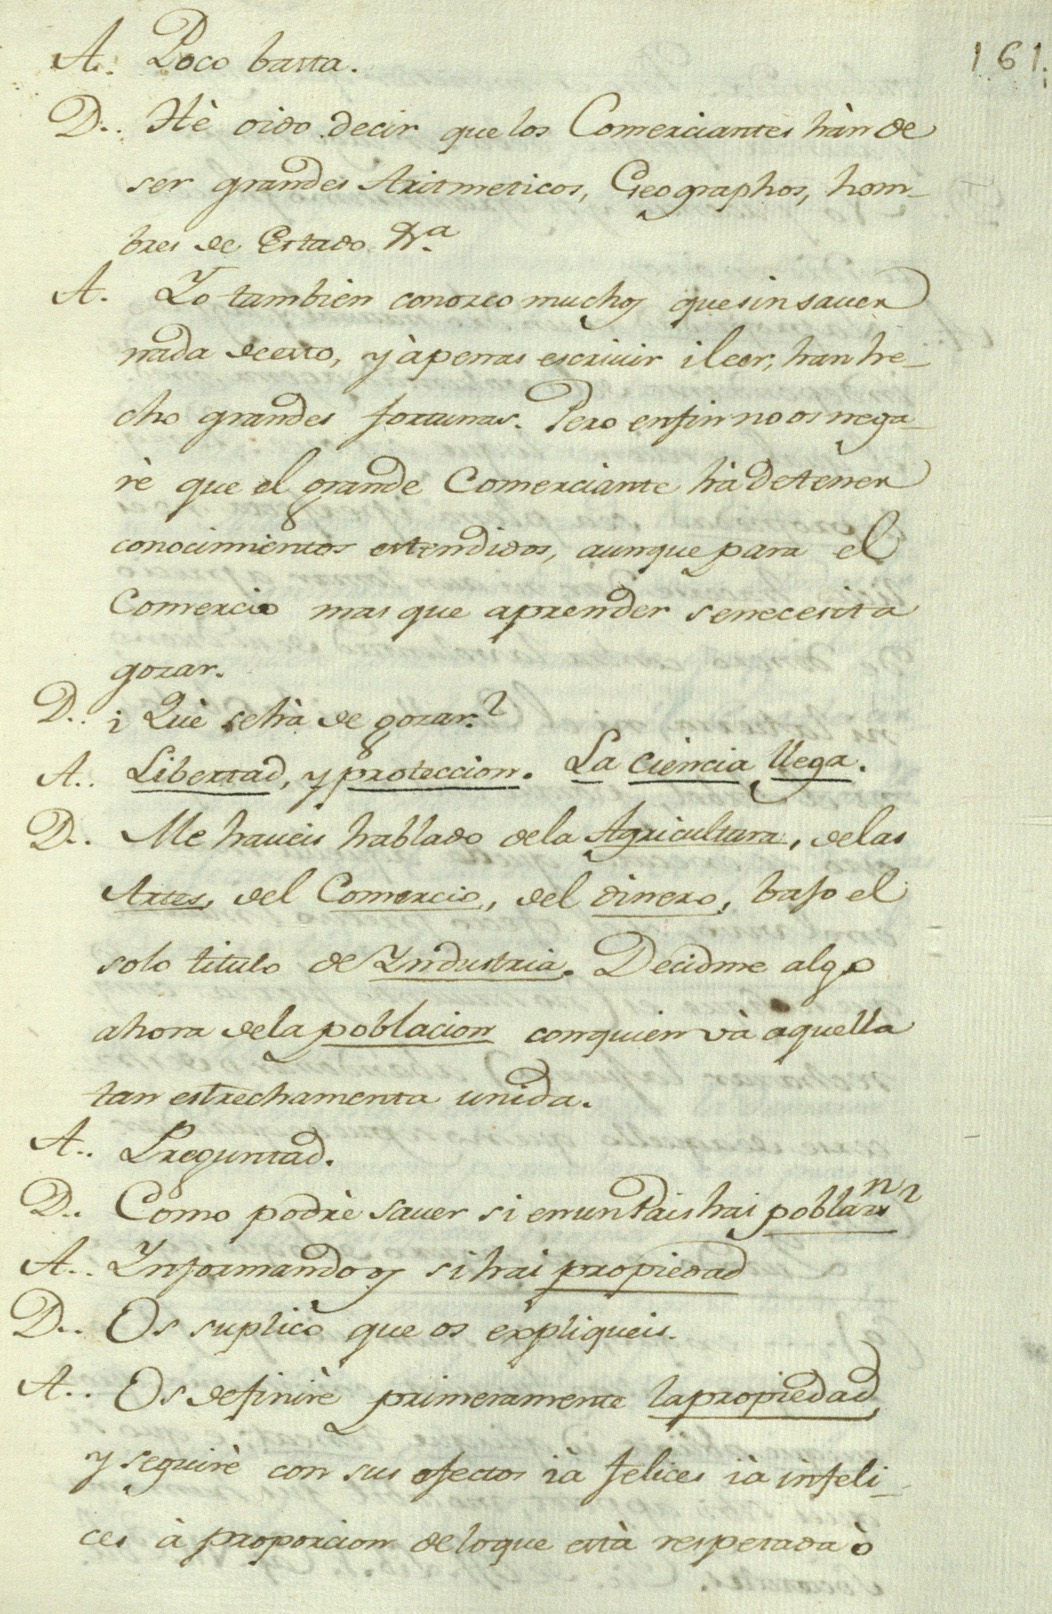 161.
A. Poco basta.
D.. Hè oido decir que los Comerciantes hàn de
ser grandes Aritmeticos, Geographos, hom-
bres de Estado &.a
A. Yo tambien conozco muchos que sin saver
nada de esto, y à penas escrivir i leer, han he-
cho grandes fortunas. Pero en fin no os nega-
rè que el grande Comerciante hà de tener
conocimientos estendidos, aunque para el
Comercio mas que aprender se necesita
gozar.
D.. ¿Què se hà de gozar?
A.. Libertad, y proteccion. La ciencia llega.
D.. Me haveis hablado de la Agricultura, de las
Artes, del Comercio, del dinero, bajo el
solo titulo de Yndustria. Decidme algo
ahora de la poblacion con quien và aquella
tan estrechamenta unida.
A.. Preguntad.
D.. Como podrè saver si en un Pais hai poblan?
A.. Ynformandoos si hai propiedad
D.. Os suplico que os expliqueis.
A.. Os definirè primeramente la propiedad,
y seguirè con sus efectos ià felices ià infeli-
ces à proporcion de lo que està respetada ò